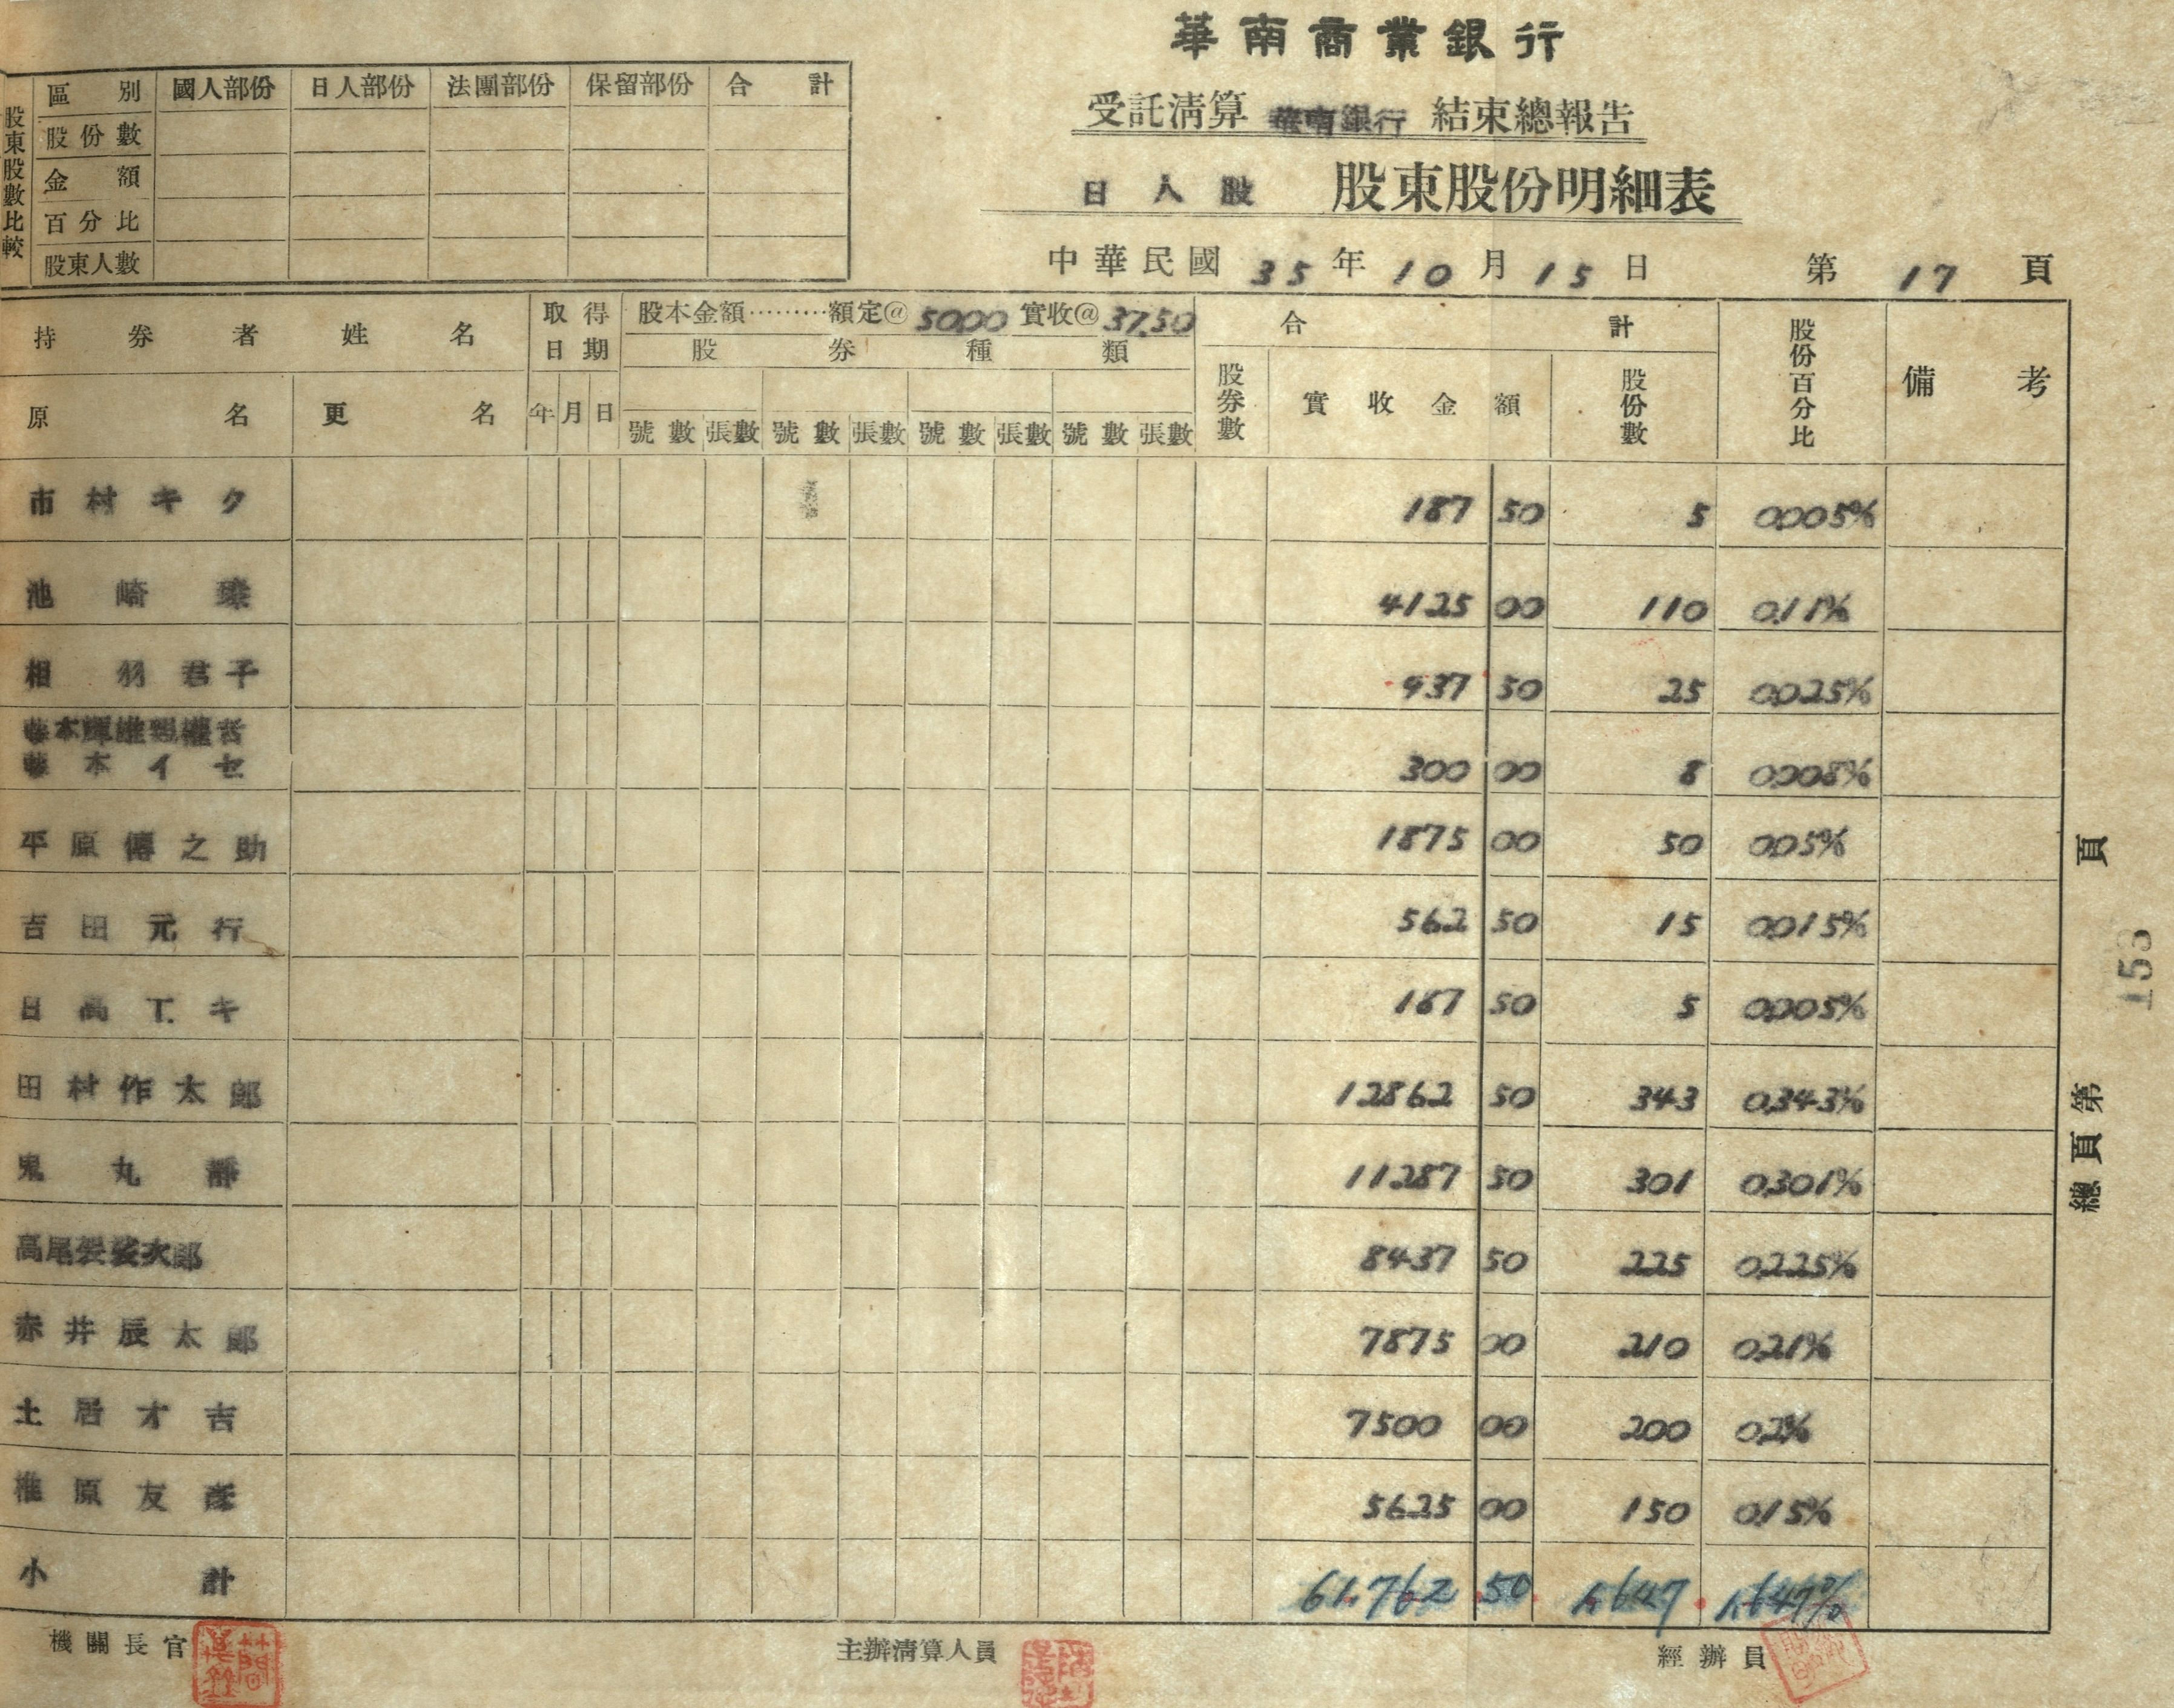 華南商業銀行
受託清算 華南銀行 結束總報告
日人股 股東股份明細表
中華民國 35 年 10 月 15 日 第 17 頁
股東股數比較
區別 國人部份 日人部份 法團部份 保留部份 合計
股份數
金額
百分比
股東人數
持券者姓名 取得日期 股本金額………額定@ 5000 實收@ 37.50 合計 股份百分比 備考
股券種類
原名 更名 年 月 日 號數 張數 號數 張數 號數 張數 號數 張數 股券數 實收金額 股份數
市村キク 187 50 5 0.005%
池崎 4125 00 110 0.11%
相羽君子 937 50 25 0.025%
藤本
藤本イセ 300 00 8 0.008%
平原傳之助 1875 00 50 0.05%
吉田元行 562 50 15 0.015%
日高工キ 187 50 5 0.005%
田村作太郎 12862 50 343 0.343%
鬼丸靜 11287 50 301 0.301%
高尾袈裟次郎 8437 50 225 0.225%
赤井辰太郎 7875 00 210 0.21%
土居才吉 7500 00 200 0.2%
椎原友彥 5625 00 150 0.15%
小計 61.762 50 1.647 1.647%
機關長官 主辦清算人員 經辦員
總頁第 頁
153